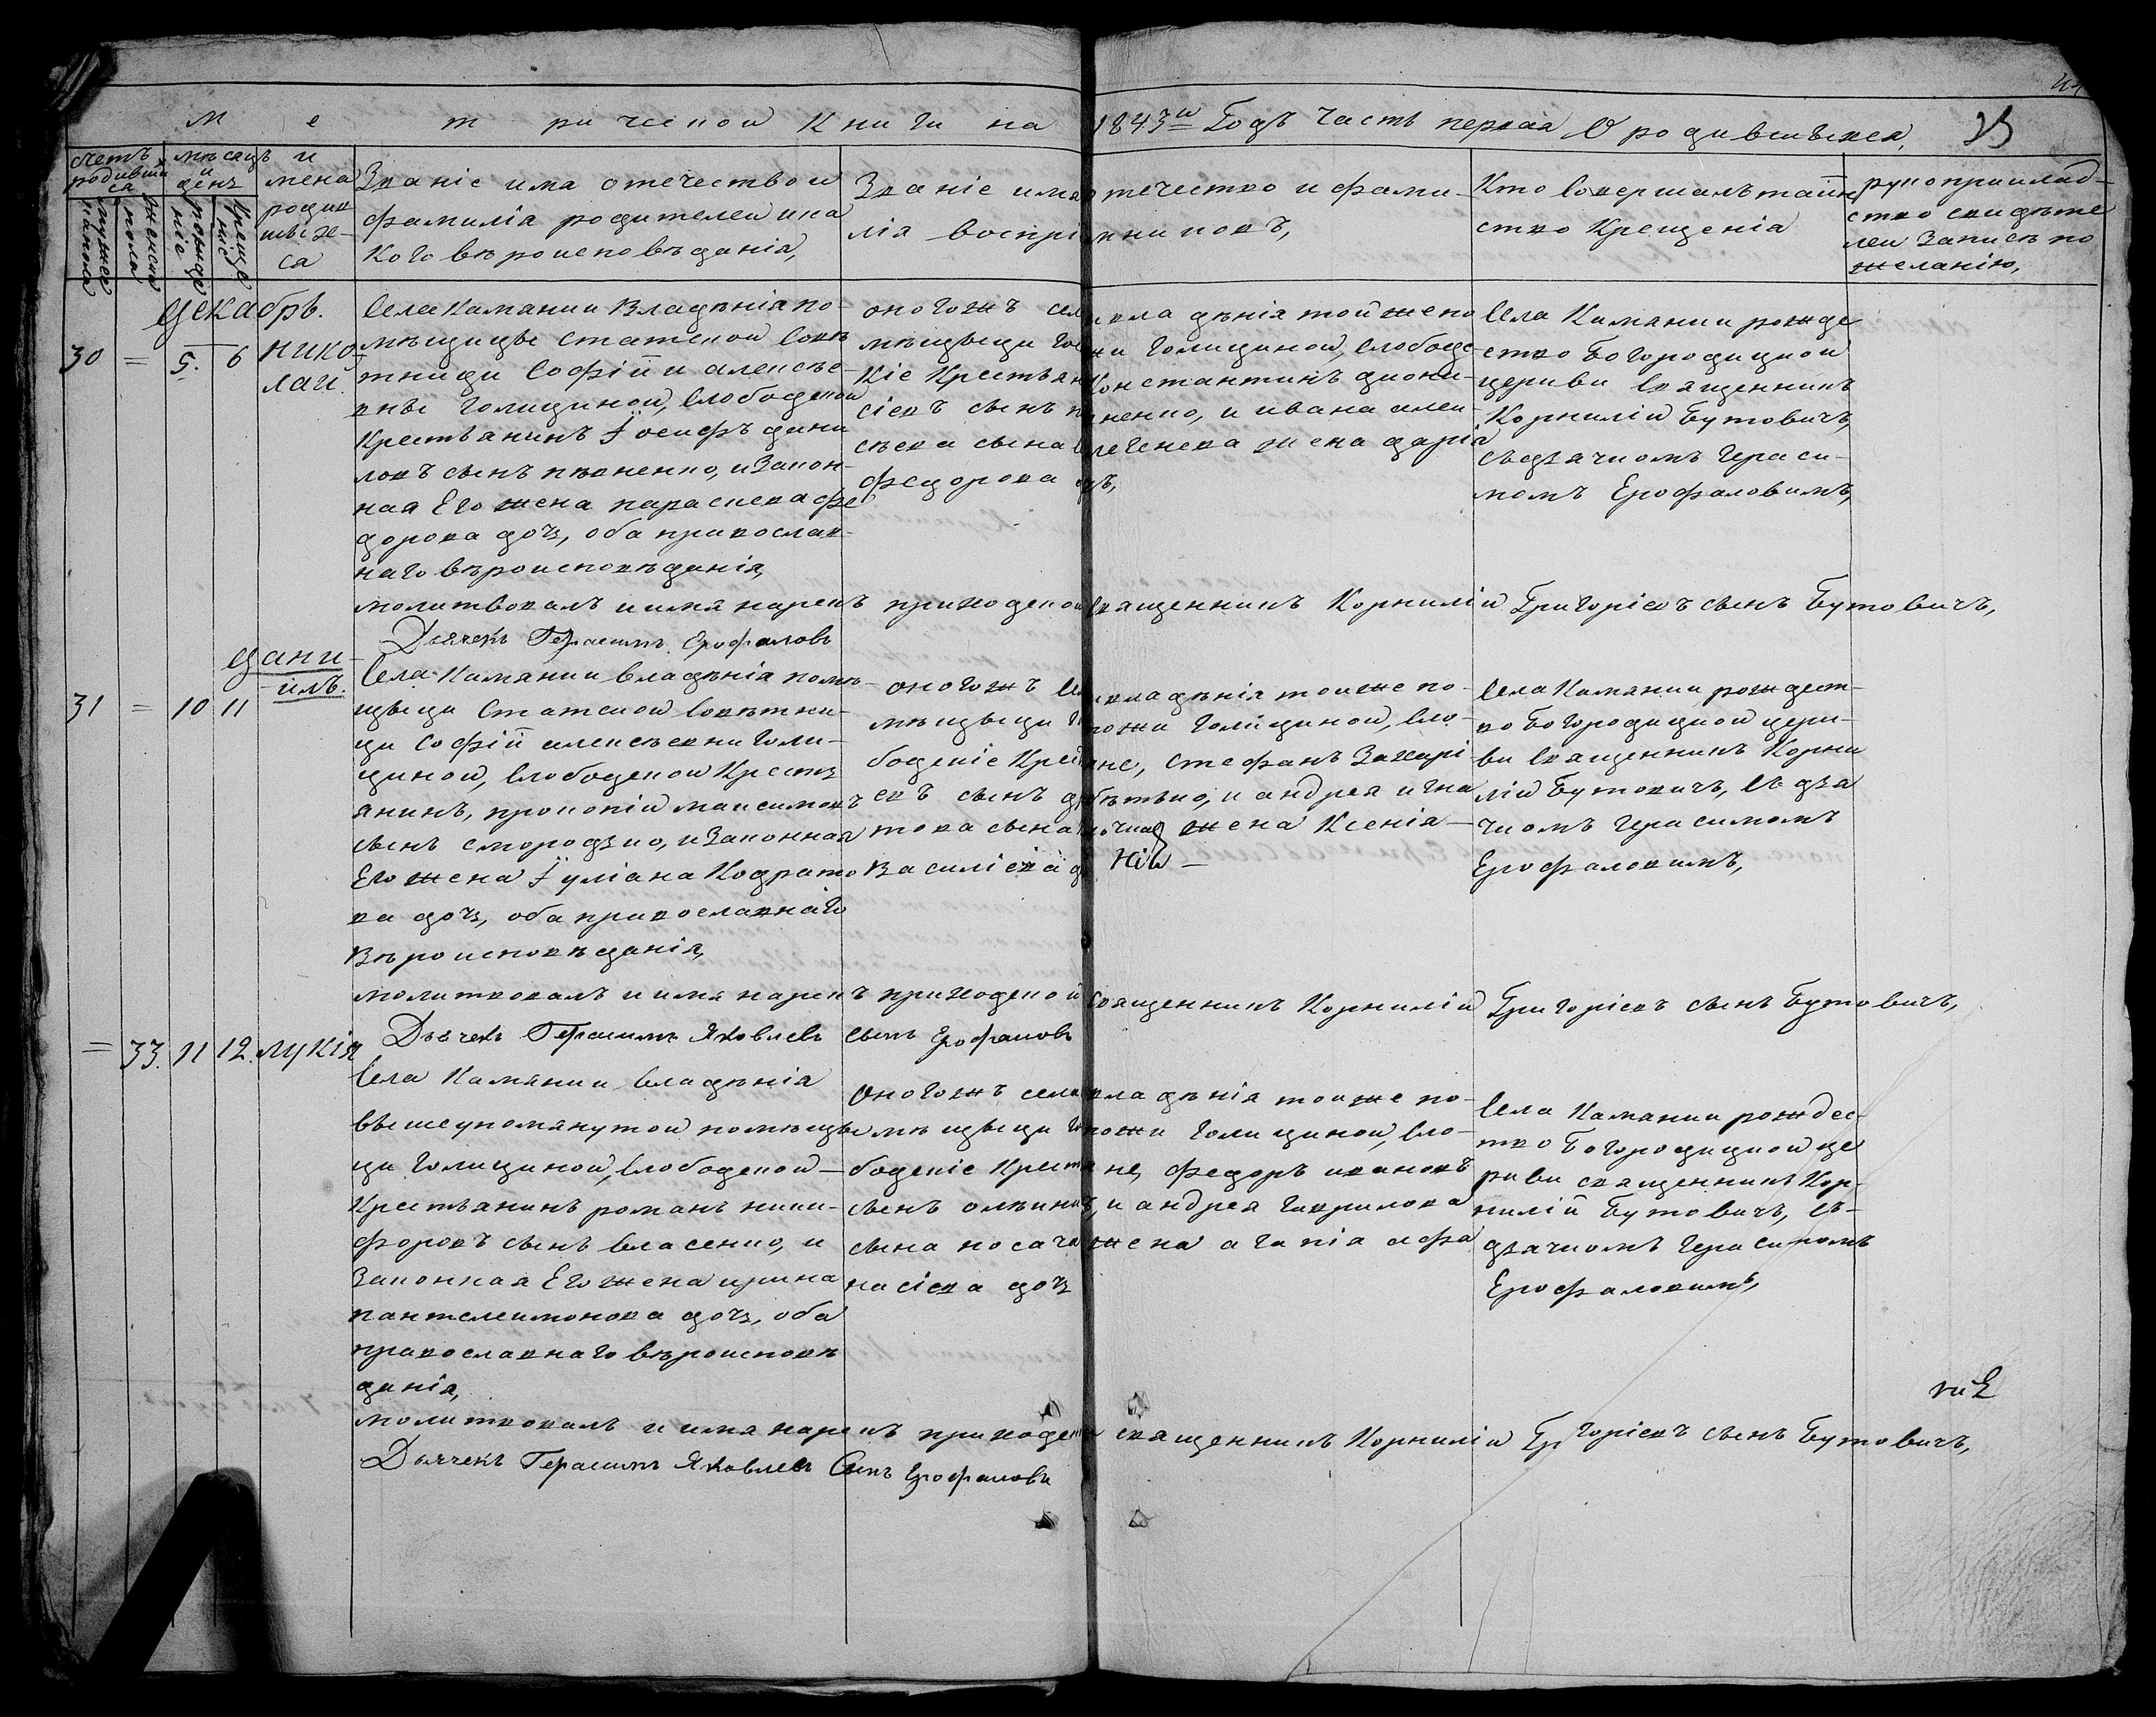 Метрической Книги на 1843й Годъ Часть первая О родившыхся,
счетъ родившихся
мужеска пола
женска пола
мѣсяцъ и день
рожденіе
крещеніе
имена родившыхса
Званіе има отечество и
фамиліа родителей и ка
кого вѣроисповѣданіа,
Званіе има отечество и фами-
ліа воспріимниковъ,
Кто совершалъ таин
ство Крещеніа
рукоприклад-
ство свидѣте
лей Записъ по
желанію,
декабрь.
30 = 5. 6
нико
лай.
Села Камянки Владѣніа по-
мѣщицы статской совѣ
тници Софіи алексѣе-
вны Голициной, Слободской
Крестьянинъ Іосифъ дани
ловъ сынъ пивненко, и Закон-
ная Его жена параскева фе
дорова дочъ, оба православ-
наго вѣроисповѣданіа,
оногожъ села владѣніа той же по
мѣщыци Госпожи Голициной, Слободс-
кіе Крестьяне Константинъ діони-
сіевъ сынъ пивненко, и ивана алек-
сѣева сына жена даріа
федорова дочъ,
Села Камянки рожде
ство Богородицкой
церкви Священникъ
Корнилій Бутовичъ,
съ дячкомъ Гераси-
момъ Ерофаловимъ,
молитвовалъ и имя нарекъ приходской Священникъ Корнилій Григоріевъ сынъ Бутовичъ,
Дьячекъ Герасимъ Ерофаловъ
31 = 10 11
дани-
илъ.
Села Камянки владѣніа помѣ-
щыци Статской Совѣтни-
ци Софіи алексѣевни Голи-
циной, Слободской Крестъ
янинъ, прокопій максимовъ
сынъ смородзко, и Законная
Его жена Іуліана Кодрато
ва дочъ, оба православнаго
Вѣроисповѣданіа,
оногожъ Села владѣніа тойже по-
мѣщыци Госпожи Голициной, Сло-
бодскіе Крестьяне, Стефанъ Захарі-
евъ сынъ и андрея игна
това сына жена Ксеніа
Василіева
Села Камянки рождест-
во Богородицкой церк-
ви Священникъ Корни
лій Бутовичъ, съ дя
чкомъ Герасимомъ
Ерофаловимъ,
молитвовалъ и имя нарекъ приходской Священникъ Корнилій Григоріевъ сынъ Бутовичъ,
Дьячекъ Герасимъ Яковлевъ Сынъ Ерофаловъ
= 33. 11 12. лукіа
Села Камянки владѣніа
вышеупомянутой помѣщы
ци Голициной, Слободской
Крестьянинъ романъ ники-
форовъ сынъ власенко, и
Законная Его жена ирина
пантелеимонова дочъ, оба
православнаго вѣроисповѣ
даніа,
Оногожъ села владѣніа тойже по-
мѣщыци Госпожи Голициной, Сло-
бодскіе Крестьяне, Федоръ ивановъ
сынъ и андрея Гаврилова
сына носача жена агапіа афа
насіева дочъ
Села Камянки рождес-
тво Богородицкой це
ркви священникъ Кор-
нилій Бутовичъ, съ-
дячкомъ Герасимомъ
Ерофаловимъ,
молитвовалъ и имя нарекъ приходской священникъ Корнилій Григоріевъ сынъ Бутовичъ,
Дьячекъ Герасимъ Яковлевъ Сынъ Ерофаловъ